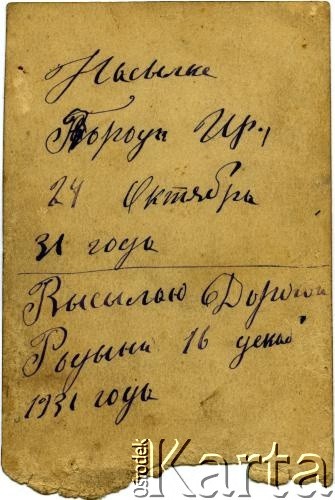 Насылке
Бороди Ир.,
24 Октября
31 года
Высылаю Дорогой
Родыни 16 декаб
1931 года
ośrodek Karta